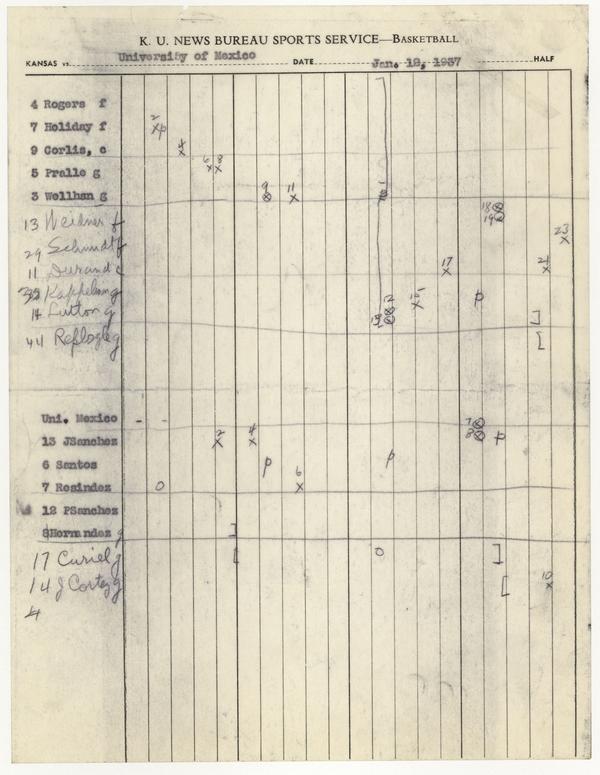 K. U. NEWS BUREAU SPORTS SERVICE—BASKETBALL
KANSAS vs. University of Mexico DATE Jan. 12, 1937 HALF
4 Rogers f
7 Holiday f 2 X p
9 Corlis, c 4 X
5 Pralle g 6 X 8 X
3 Wellhan g 9 ⊗ 11 X 1
13 Weidner f 18 ⊗ 19 ⊗
29 Schmidt f 23 X
11 Durand c 17 X 21 X
Kappelman g 12 15 X p
14 Lutton g ]
44 Replogle g [
Uni. Mexico - - 7 ⊗
13 JSanchez 2 X 4 X 8 ⊗ p
6 Santos p p
7 Rosindez O 6 X
12 PSanchez
8 Hornandez g ]
17 Curiel g [ O ]
14 J Cortez g [ 10 X
4